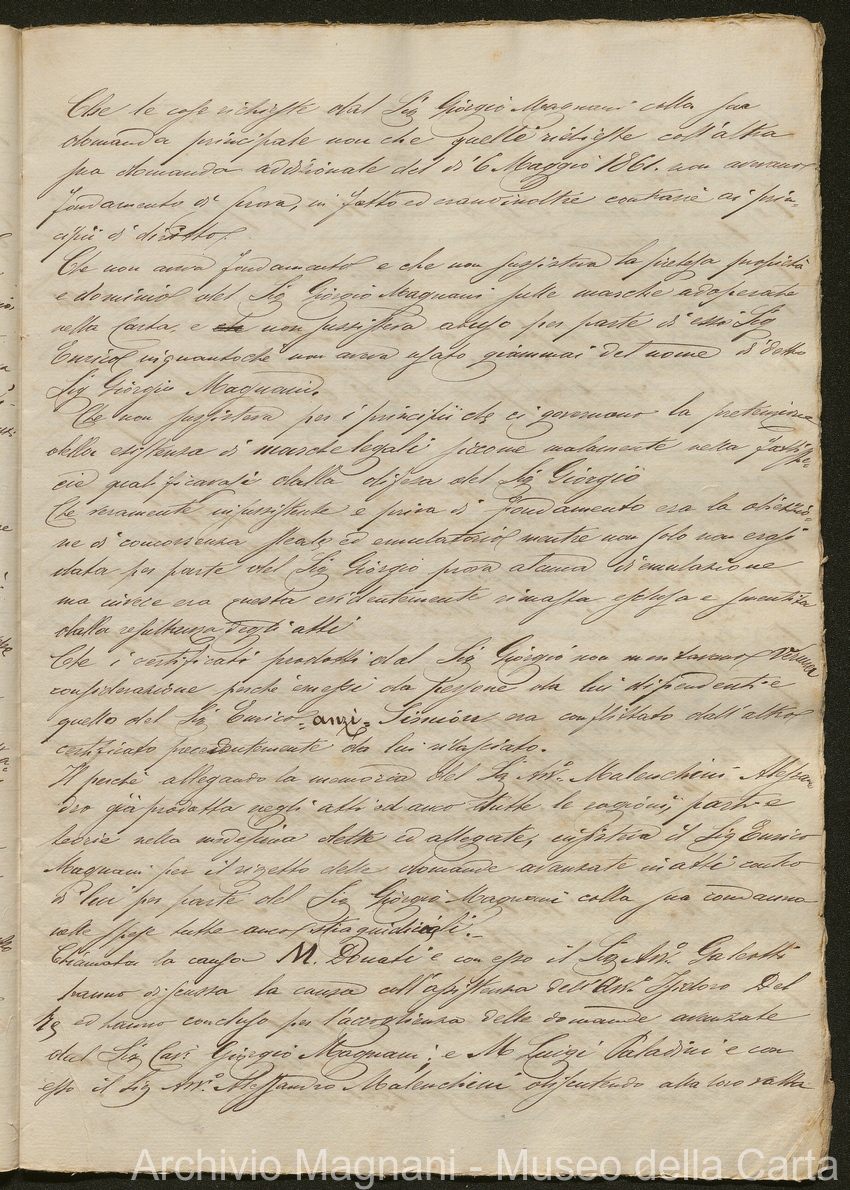 Che le cose richieste dal Sig Giorgio Magnani colla sua
domanda principale non che quelle richieste coll'altra
sua domanda addizionale del dì 6 Maggio 1861. non avevano
fondamento di prova, in fatto ed eranvi inoltre contrarie ai prin-
cipii di diritto.
Che non aveva fondamento e che non sussisteva la pretesa proprietà
e dominio del Sig Giorgio Magnani sulle marche adoperate
nella Carta, e che non sussisteva abuso per parte di esso Sig
Enrico inquantochè non aveva usato giammai del nome di detto
Sig Giorgio Magnani.
Che non sussisteva per i principii che ci governano la pretensione
della esistenza di marche legali siccome malamente nella fattispe-
cie qualificavasi dalla difesa del Sig Giorgio
Che veramente insussistente e priva di fondamento era la obiezio-
ne di concorrenza sleale ed emulatoria mentre non solo non erasi
data per parte del Sig Giorgio prova alcuna di emulazione
ma invece era questa evidentemente rimasta esclusa e smentita
dalla resultanza degli atti
Che i certificati prodotti dal Sig Giorgio non meritavano veruna
considerazione perchè emessi da persone da lui dipendenti e
quello del Sig Enrico =anzi= Simion era conflittato dall'altro
certificato precedentemente da lui rilasciato.
Il perchè allegando la memoria del Sig Avv.o Malenchini Alessan
dro già prodotta negli atti ed anco tutte le ragioni parti e
teorie nella medesima dette ed allegate, insisteva il Sig Enrico
Magnani per il rigetto delle domande avanzate in atti contro
di lui per parte del Sig Giorgio Magnani colla sua condanna
nelle spese tutte anco stragiudiciali.
Chiamata la causa M. Donati e con esso il Sig Avv.o Galeotti
hanno discussa la causa coll'assistenza dell'Avv.o Isidoro Del
Re ed hanno concluso per l'accoglienza delle domande avanzate
dal Sig Cav. Giorgio Magnani; e M Luigi Paladini e con
esso il Sig Avv.o Alessandro Malenchini
Archivio Magnani - Museo della Carta